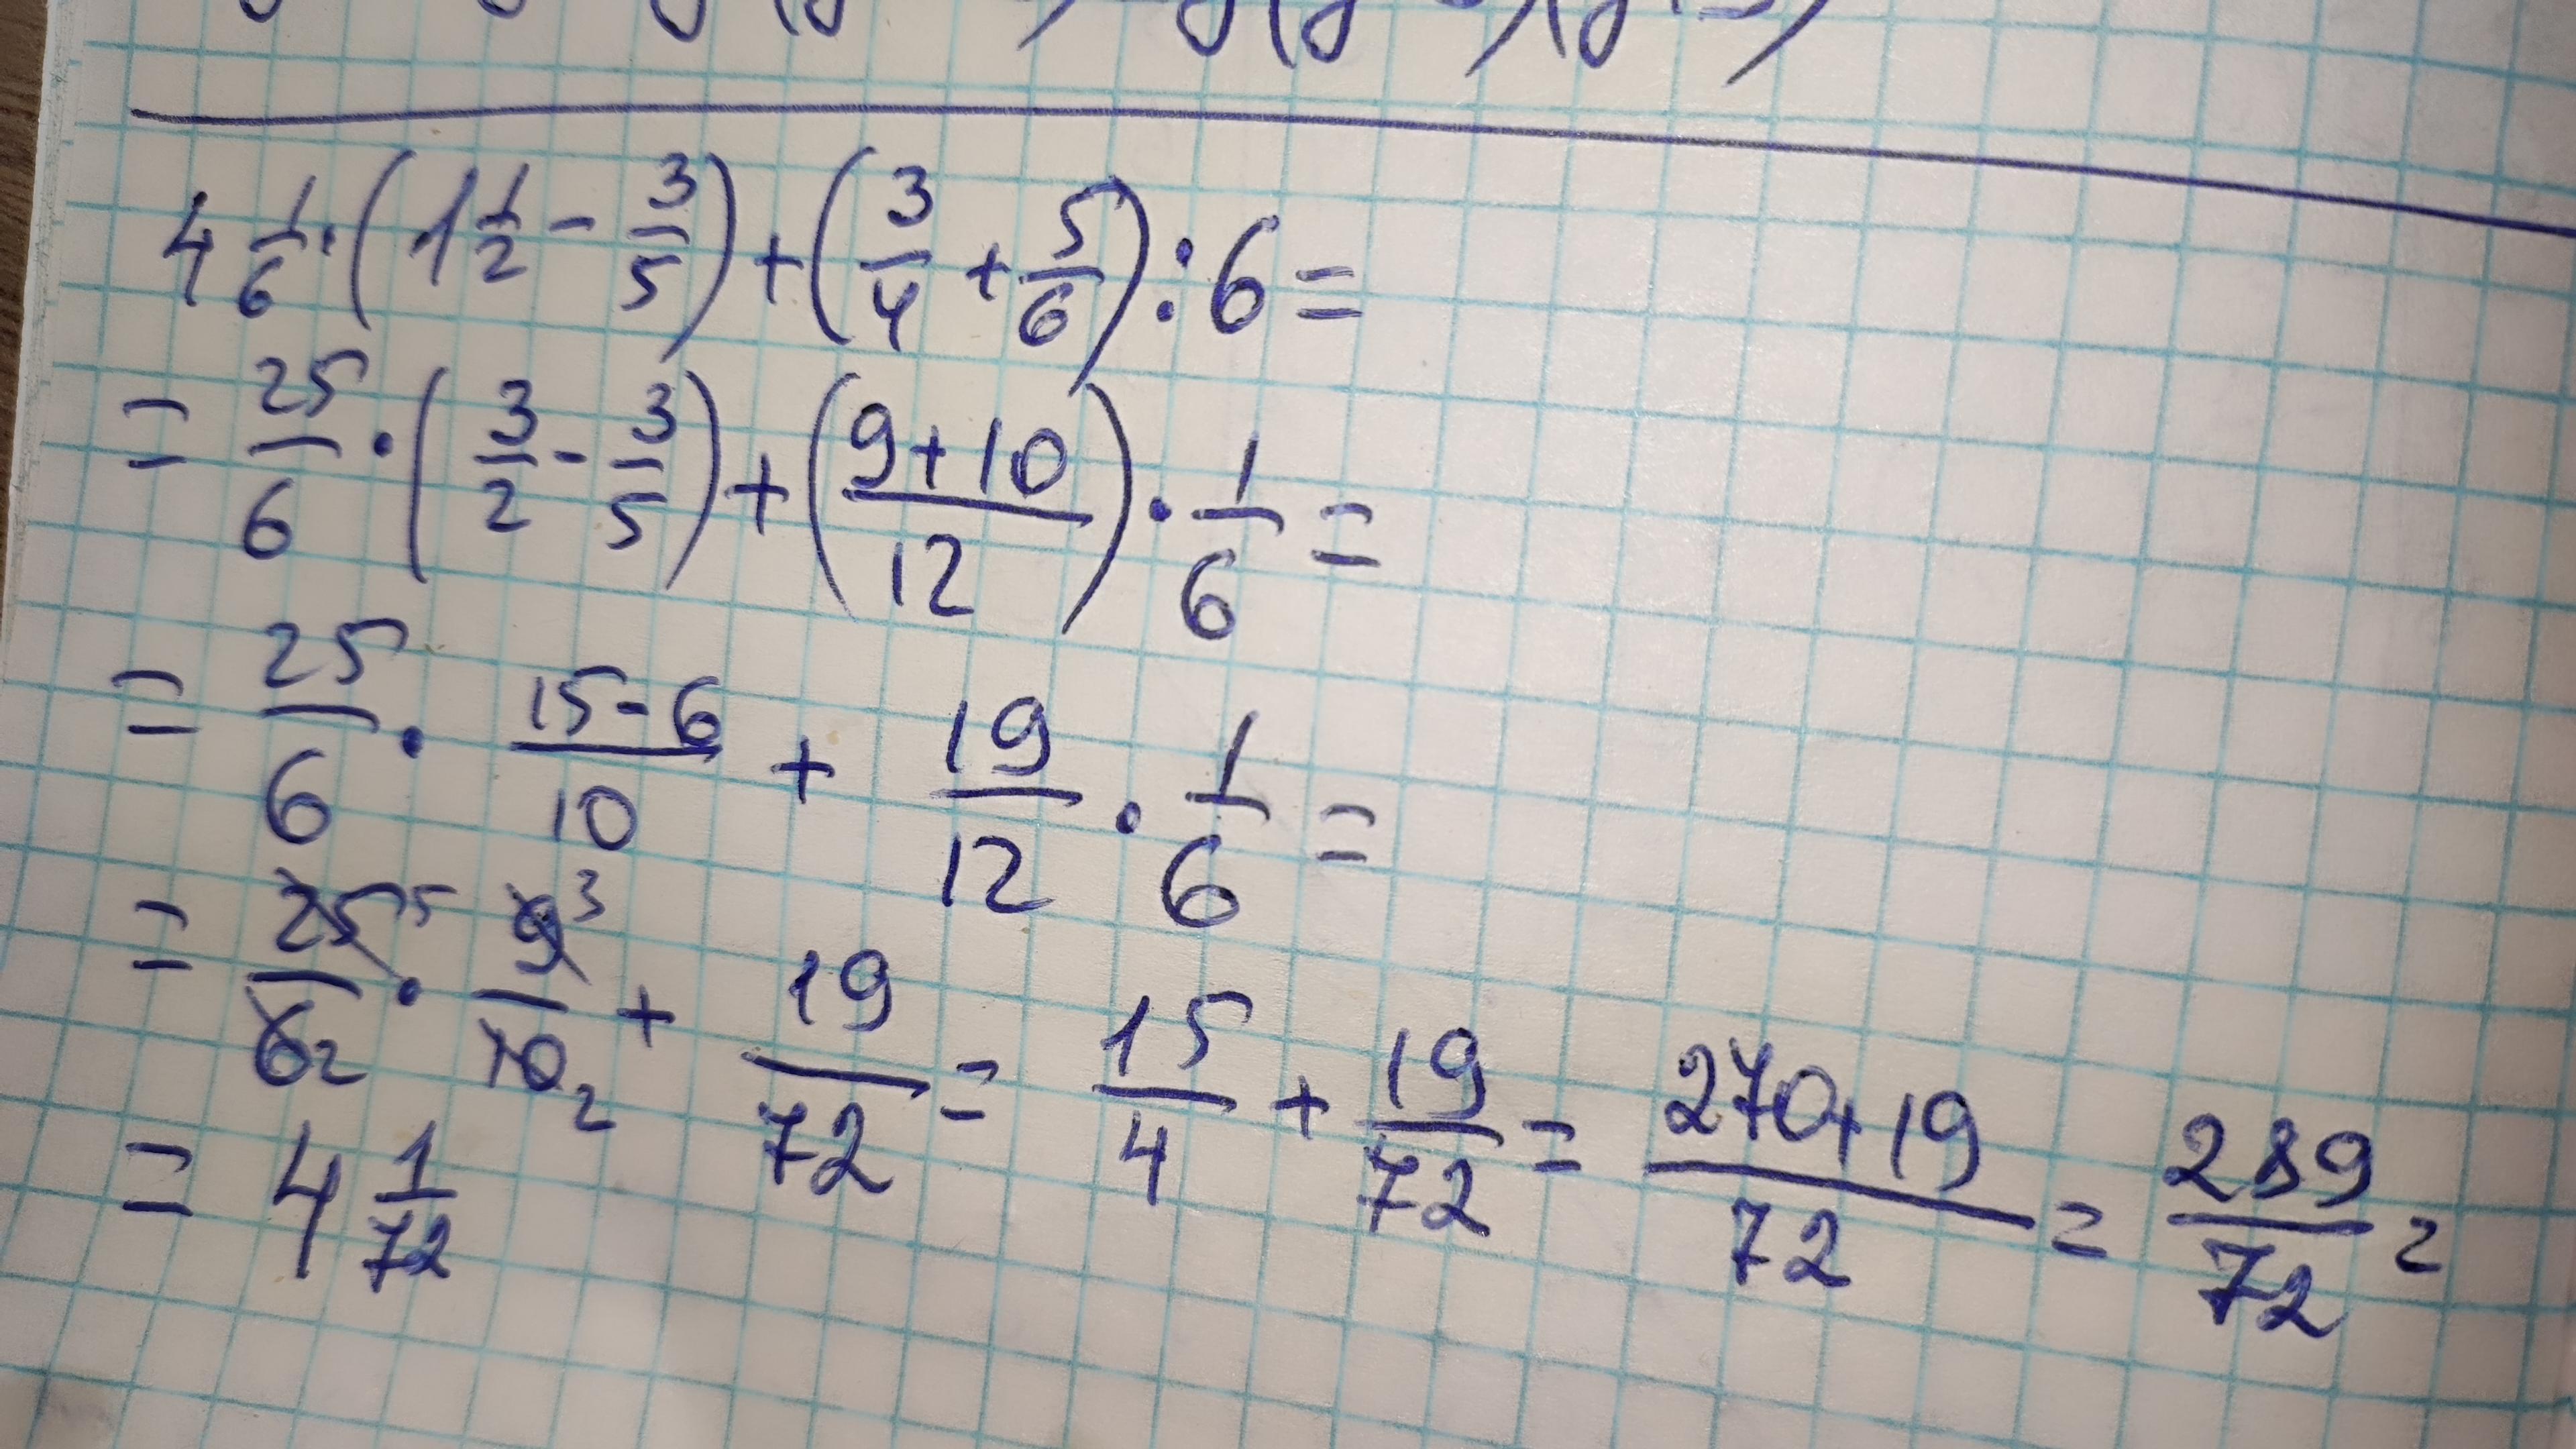 4 1/6 · (1 1/2 - 3/5) + (3/4 + 5/6) : 6 =
= 25/6 · (3/2 - 3/5) + ((9+10)/12) · 1/6 =
= 25/6 · (15-6)/10 + 19/12 · 1/6 =
= 25 5/6 2 · 9 3/10 2 + 19/72 = 15/4 + 19/72 = (270+19)/72 = 289/72 =
= 4 1/72